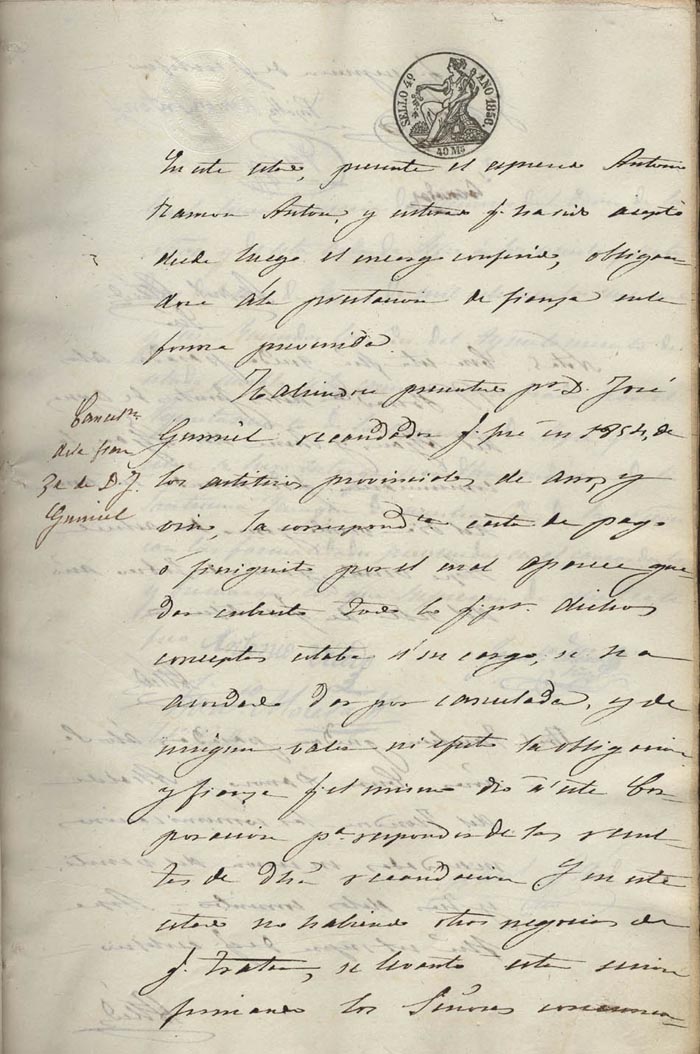 SELLO 4º AÑO 1856.
40 Ms
En este estado, presente el espresado Antonio
Ramon Anton, y enterado q. ha sido aceptó
desde luego el encargo conferido, obligan-
dose á la prestacion de fianza en la
forma prevenida.
Habiendose presentado pr. D. José
Gumiel recaudador q. fué en 1854, de
los arbitrios provinciales de arroz y
vino, la correspondte. carta de pago
ó finiquito por el cual aparece que-
dar cubierto todo lo q. pr. dichos
conceptos estaba á su cargo, se ha
acordado dar por cancelada, y de
ningun valor ni efecto la obligacion
y fianza q. el mismo dió á esta Cor-
poracion pa. responder de las resul-
tas de dha. recaudacion Y en este
estado no habiendo otros negocios de
q. tratar, se levantó esta sesion
firmando los Señores concurren-
Cancelon.
de la fian
za de D. J.
Gumiel